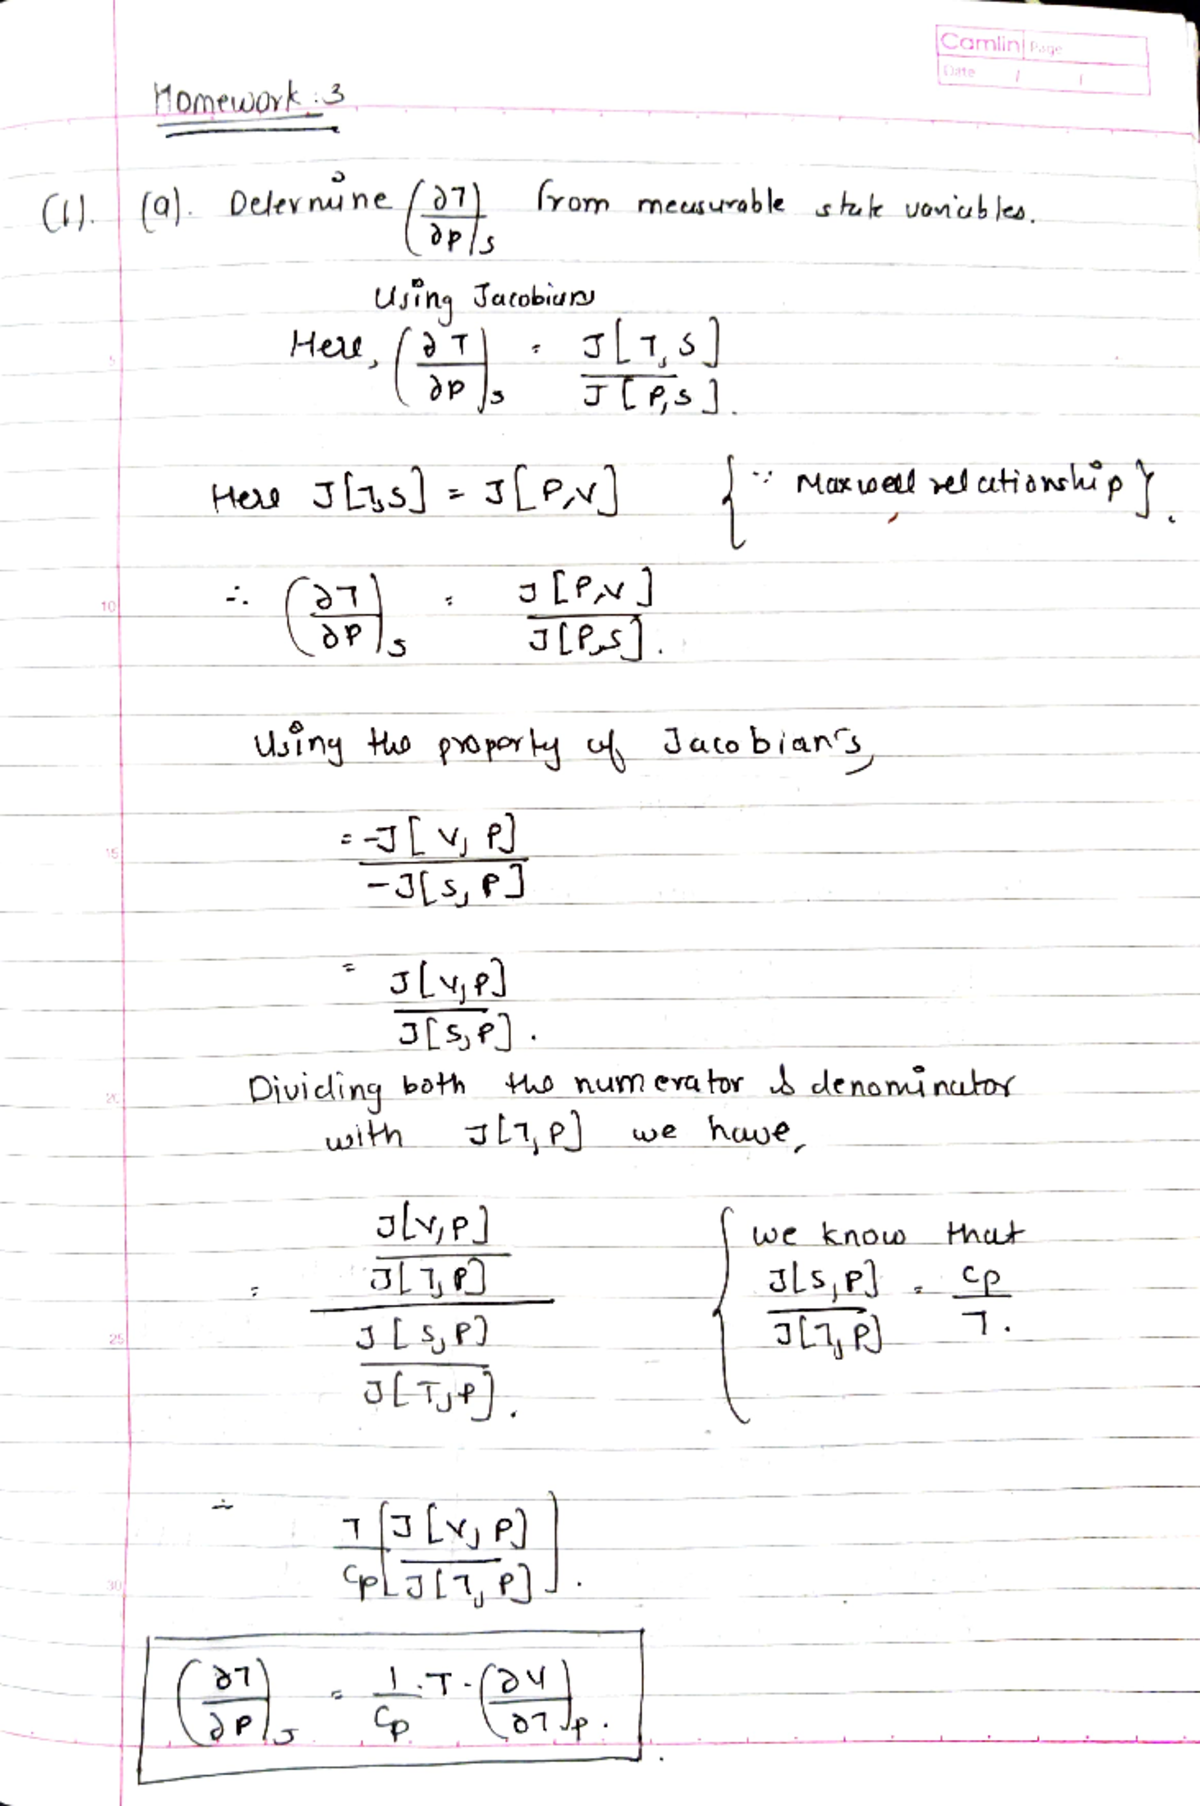 Camlin Page
Date / /
Homework : 3
(1). (a). Determine (∂T/∂P)_S from measurable state variables.
Using Jacobians
Here, (∂T/∂P)_S = J[T,S] / J[P,S].
5
Here J[T,S] = J[P,V] {∵ Maxwell relationship}.
∴ (∂T/∂P)_S = J[P,V] / J[P,S].
10
Using the property of Jacobian's,
= -J[V, P] / -J[S, P]
15
= J[V, P] / J[S, P].
Dividing both the numerator & denominator
20
with J[T, P] we have,
= (J[V, P] / J[T, P]) / (J[S, P] / J[T, P]). { we know that
J[S, P] / J[T, P] = Cp / T.
25
∴ T/Cp [J[V, P] / J[T, P]].
30
(∂T/∂P)_S = 1/Cp · T · (∂V/∂T)_P.